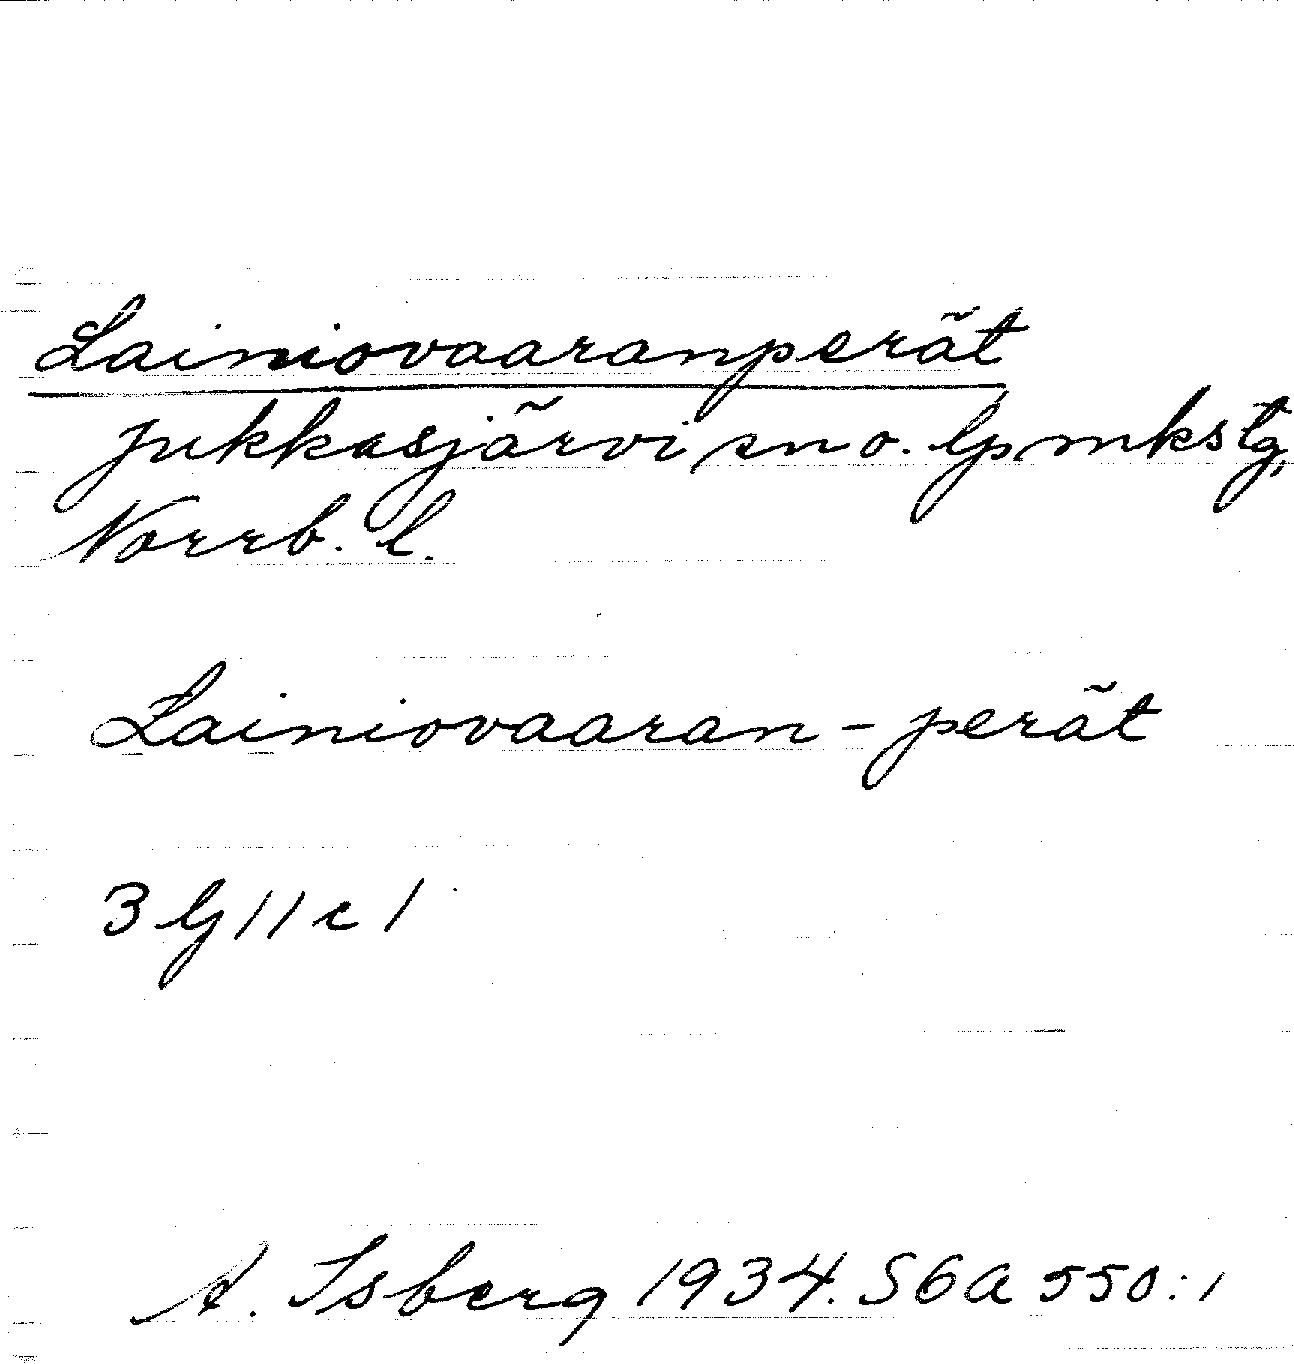 Lainiovaaranperät
Jukkasjärvi sn o. lpmkstg,
Norrb. l.
Lainiovaaran-perät
3 lj 11 c 1
A. Isberg 1934. S6a 550:1